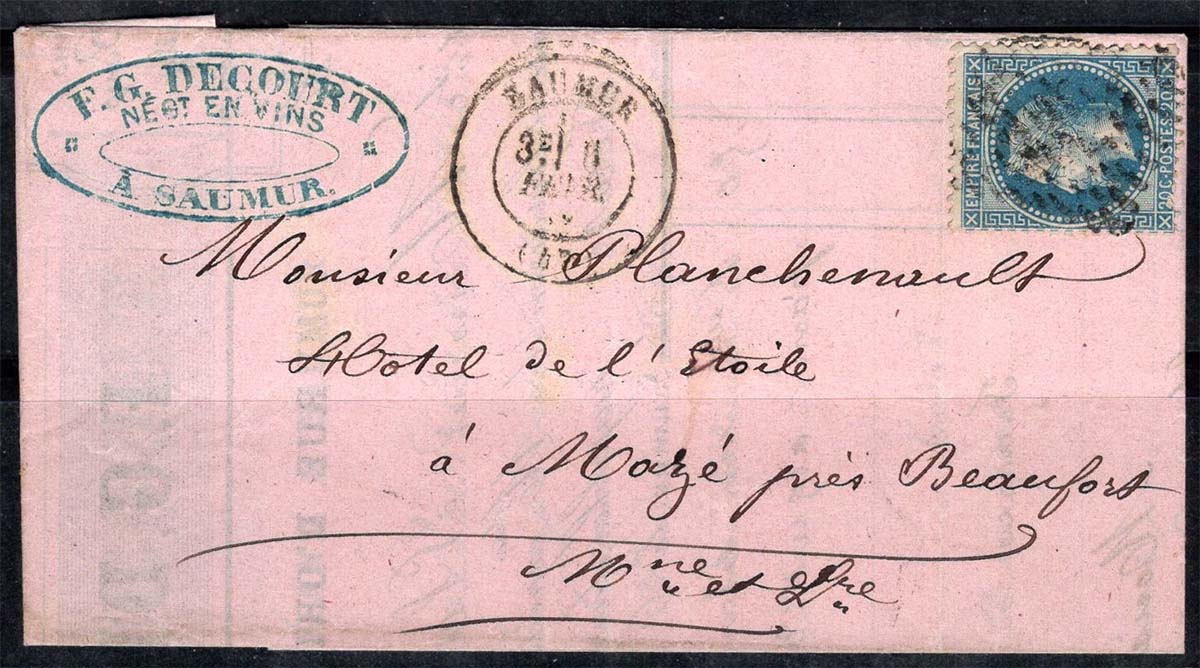 F. G. DECOURT
NÉGT EN VINS
À SAUMUR.
SAUMUR
3E 8
FEVR.
(47)
EMPIRE FRANÇAIS
20 C. POSTES. 20 C.
Monsieur Planchenault
Hotel de l' Etoile
à Mazé près Beaufort
Mne et Lre